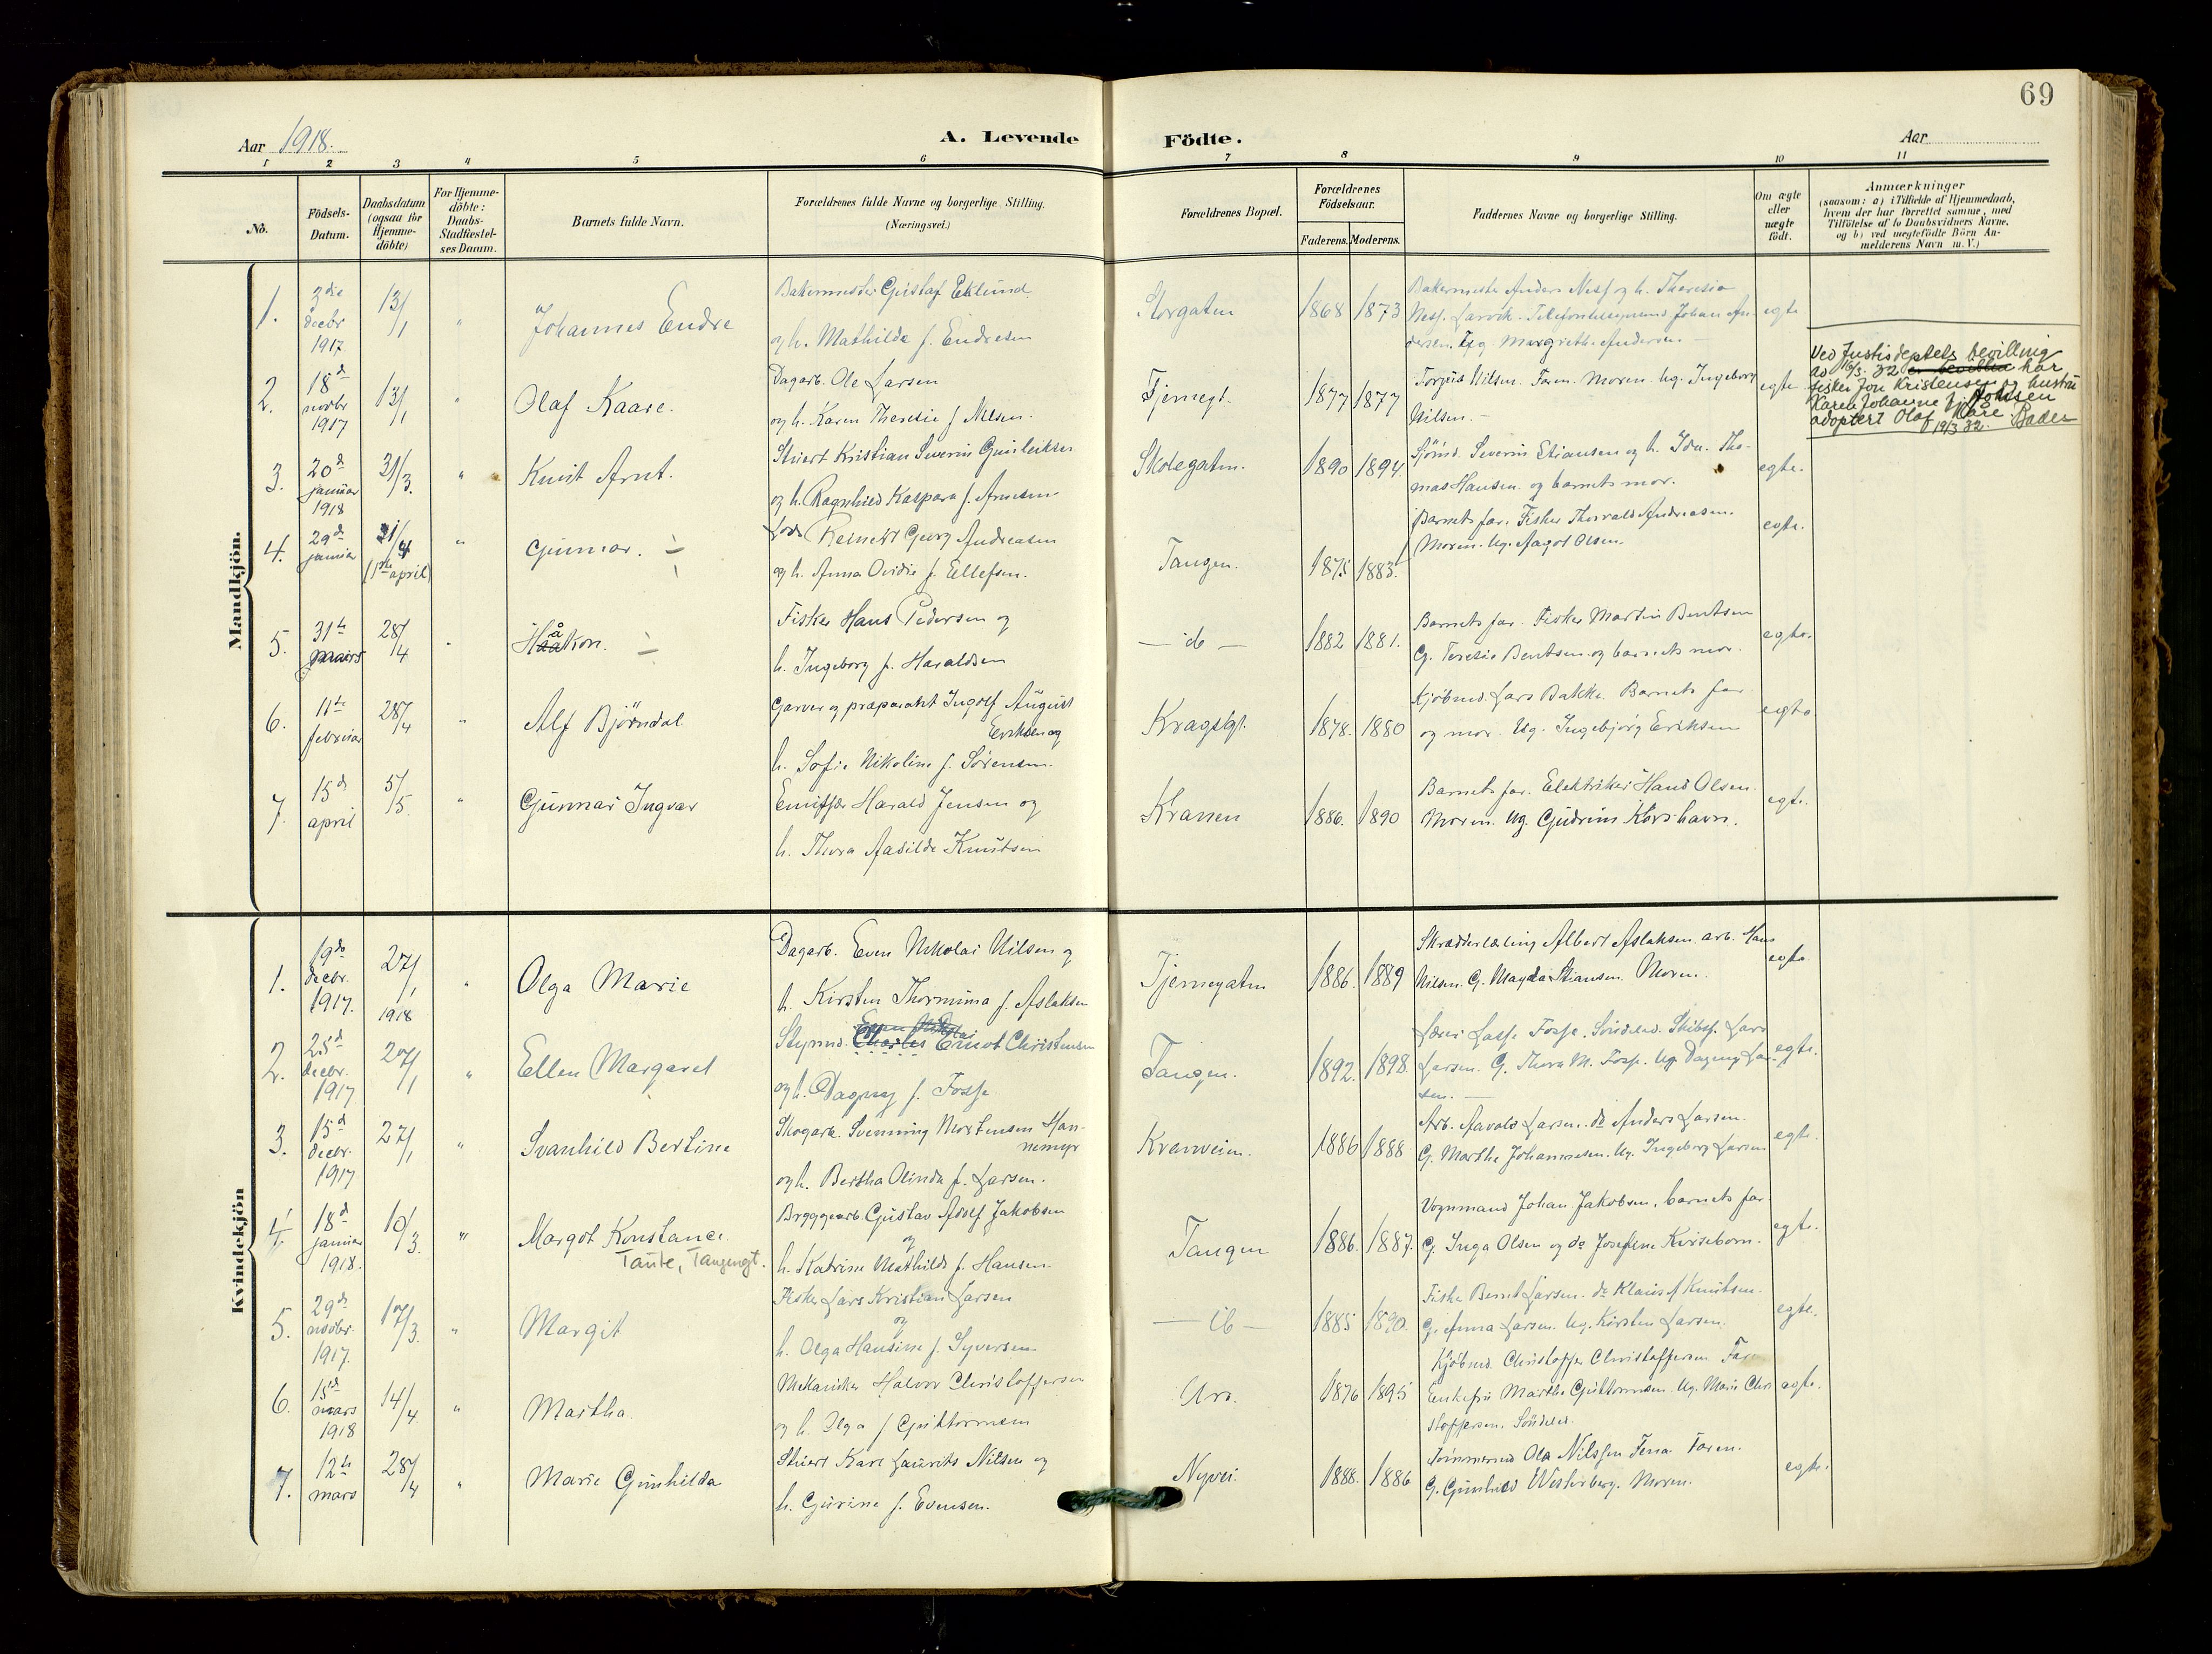 69
Aar 1918.
A. Levende Födte.
Aar
1 2 3 4 5 6 7 8 9 10 11
No.
Födsels-Datum.
Daabsdatum (ogsaa for Hjemme-döbte)
For Hjemme-döbte: Daabs-Stadfestel-ses Datum.
Barnets fulde Navn.
Forældrenes fulde Navne og borgerlige Stilling. (Næringsvei.)
Forældrenes Bopæl.
Forældrenes Födselsaar.
Faderens. Moderens.
Faddernes Navne og borgerlige Stilling.
Om ægte eller uægte födt.
Anmærkninger
(saasom: a) i Tilfælde af Hjemmedaab,
hvem der har forrettet samme, med
Tilföielse af to Daabsvidners Navne,
og b) ved uegtefödte Börn An-
melderens Navn m. V.)
Mandkjön.
1. 3die decbr 1917 13/1 " Johannes Endre
Bakermester Gustaf Eklund
og h. Mathilde f. Endresen
Storgaten 1868 1873
Bakermester Anders Ness og h. Theresia
Ness. Larvik. Johan An-
dersen. Ug. Margrethe Andersen. egte
2. 18d novbr 1917 13/1 Olaf Kaare.
Dagarb. Ole Larsen
og h. Karen Theresie f. Nilsen.
Tjernegt. 1877 1877
Torjus Nilsen. Faren. Moren. Ug. Ingeborg
Nilsen. egte
Ved Justisdeptets bevilling
av 16/3. 32 har
fisker Jon Kristensen og hustru
Karen Johanne f.
adoptert Olaf Kåre.
19/3 32. Bader
3. 20d januar 1918 31/3. " Knut Arnt.
Stuert Kristian Severin Gunleiksen
og h. Ragnhild Kaspara f. Arnesen
Skolegaten. 1890 1894.
Sjömd. Severin Stiansen og h. Ida. Tho-
mas Hansen. og barnets mor. egte.
4. 29d januar 21/4 (1ste april) " Gunnar.
Lods Reinert Georg Andreasen
og h. Anna Ovidie f. Ellefsen.
Tangen. 1875 1883.
Barnets far. Fisker Thorvald Andreasen.
Moren. Ug. Aagot Olsen. egte.
5. 31te mars 28/4 " Håkon.
Fisker Hans Pedersen og
h. Ingeborg f. Haraldsen
— do — 1882 1881.
Barnets far. Fisker Martin Bentsen
G. Teresie Bentsen og barnets mor. egte.
6. 11te februar 28/4 " Alf Björndal
Garver og præparant Ingolf August
Eriksen og
h. Sofie Nikoline f. Sörensen.
Kragsgt. 1878. 1880
Kjöbmd. Lars Bakke. Barnets far
og mor. Ug. Ingebjörg Eriksen egte
7. 15d april 5/5. " Gunnar Ingvar
Harald Jensen og
h. Thora Aasilde Knutsen
Kranen 1886. 1890
Barnets far. Elektriker Hans Olsen.
Moren. Ug. Gudrun Korshavn. egte.
Kvindekjön
1. 19de decbr. 1917. 27/1 1918 " Olga Marie
Dagarb. Even Nikolai Nilsen og
h. Kirsten Thormina f. Aslaksen
Tjernegaten 1886. 1889
Skrædderlærling Albert Aslaksen. arb. Hans
Nilsen. G. Magda Stiansen. Moren. egte.
2. 25d decbr. 1917 27/1 " Ellen Margaret
Styrmd. Charles Ernst Christensen
og h. Dagny f. Fosse
Tangen. 1892. 1898.
Lærer Lasse Fosse. Söndeled. Skibsf. Lars
Larsen. G. Thora M. Fosse. Ug. Dagny Lar-
sen. egte.
3. 15d decbr. 1917 27/1 " Svanhild Bertine
Skogarb. Svenning Mortensen Han-
nemyr
og h. Bertha Olinda f. Larsen.
Kranveien. 1886 1888
Arb. Aavald Larsen. do Anders Larsen.
G. Marthe Johannesen. Ug. Ingeborg Larsen egte.
4. 18d januar 1918. 10/3. " Margot Konstance.
Taule, Tangengt.
Bryggearb. Gustav Adolf Jakobsen
og
h. Katrine Mathilde f. Hansen
Tangen 1886. 1887.
Vognmand Johan Jakobsen, barnets far.
G. Inga Olsen og do Josefine Kviseborn. egte.
5. 29d novbr. 1917. 17/3. " Margit
Fisker Lars Kristian Larsen
og
h. Olga Hansine f. Syversen
— do — 1885 1890.
Fisker Bernt Larsen. do Klaus Knutsen.
G. Anna Larsen. Ug. Kirsten Larsen. egte.
6. 15d mars 1918 14/4 " Martha.
Mekaniker Halvor Christoffersen
og h. Olga f Guttormsen
Uro. 1876 1895
Kjöbmd. Christoffer Christoffersen Far
Enkefru Marthe Guttormsen. Ug. Marie Chri
stoffersen. Söndeled. egte.
7. 12te mars 28/4 " Marie Gunhilda
Stuert Karl Laurits Nilsen og
h. Gurine f. Evensen.
Nyvei. 1888. 1886
Tömmermd Ola Nilssen Faren.
G. Gunhild Westerberg. Moren. egte.